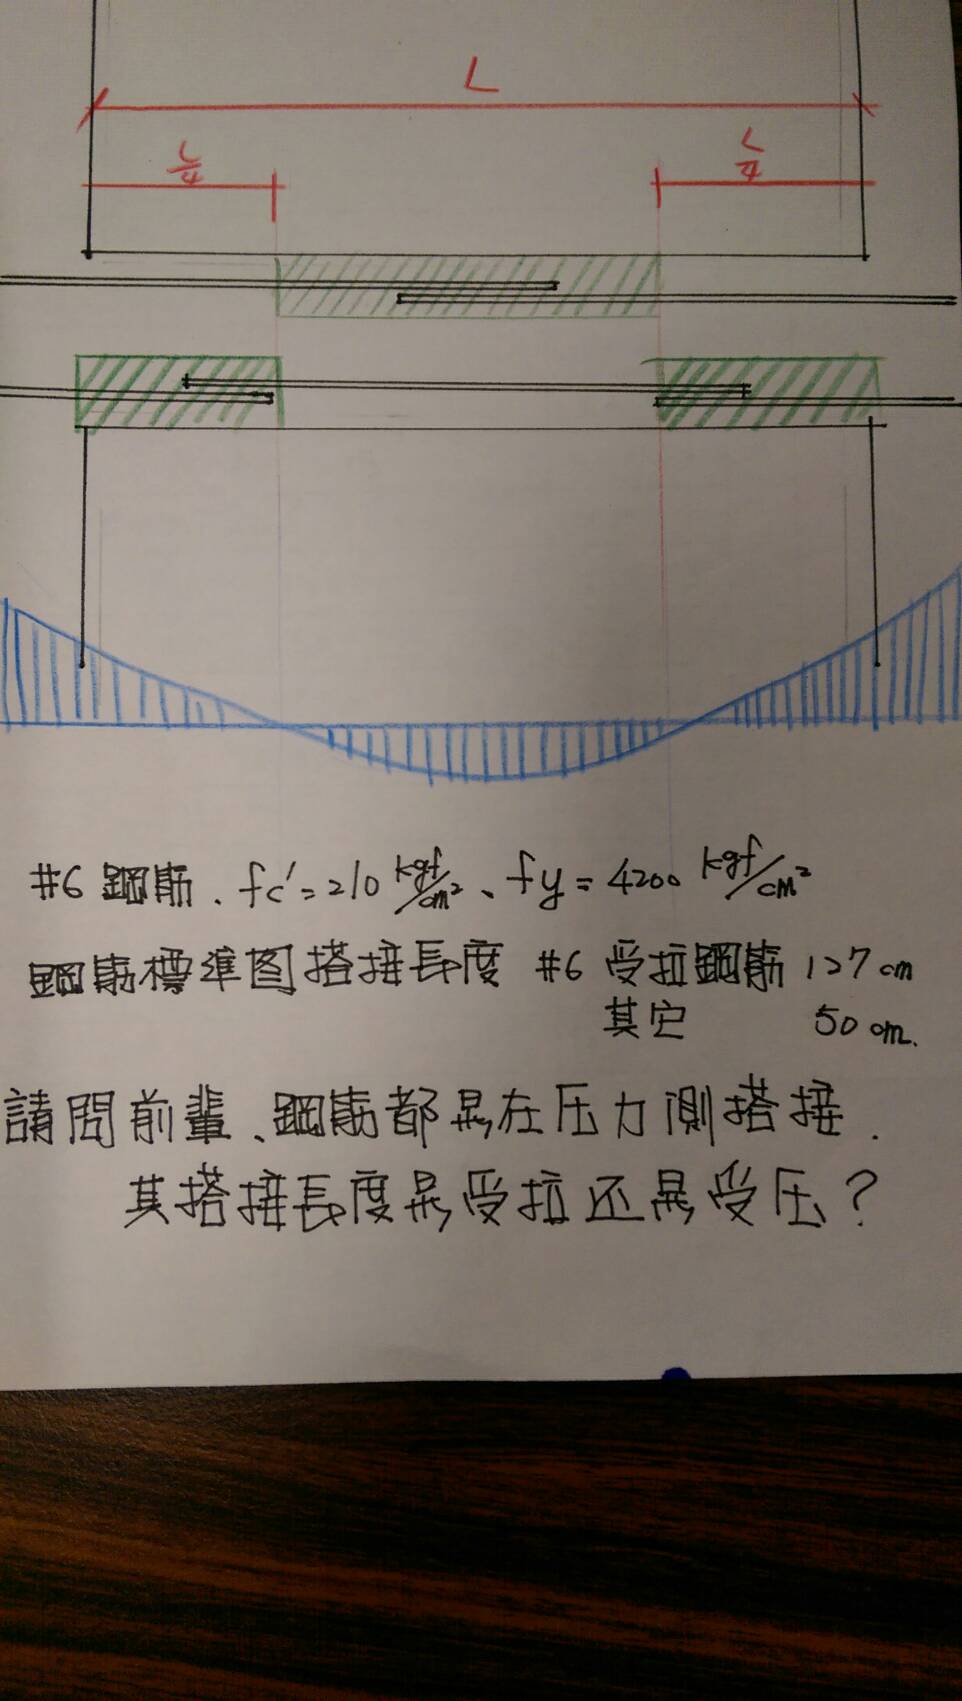 L
L/4
L/4
#6 鋼筋、fc'=210 kgf/cm²、fy=4200 kgf/cm²
鋼筋標準图搭接長度 #6 受拉鋼筋 127cm
其它 50cm.
請問前輩、鋼筋都是在压力側搭接.
其搭接長度是受拉还是受压?